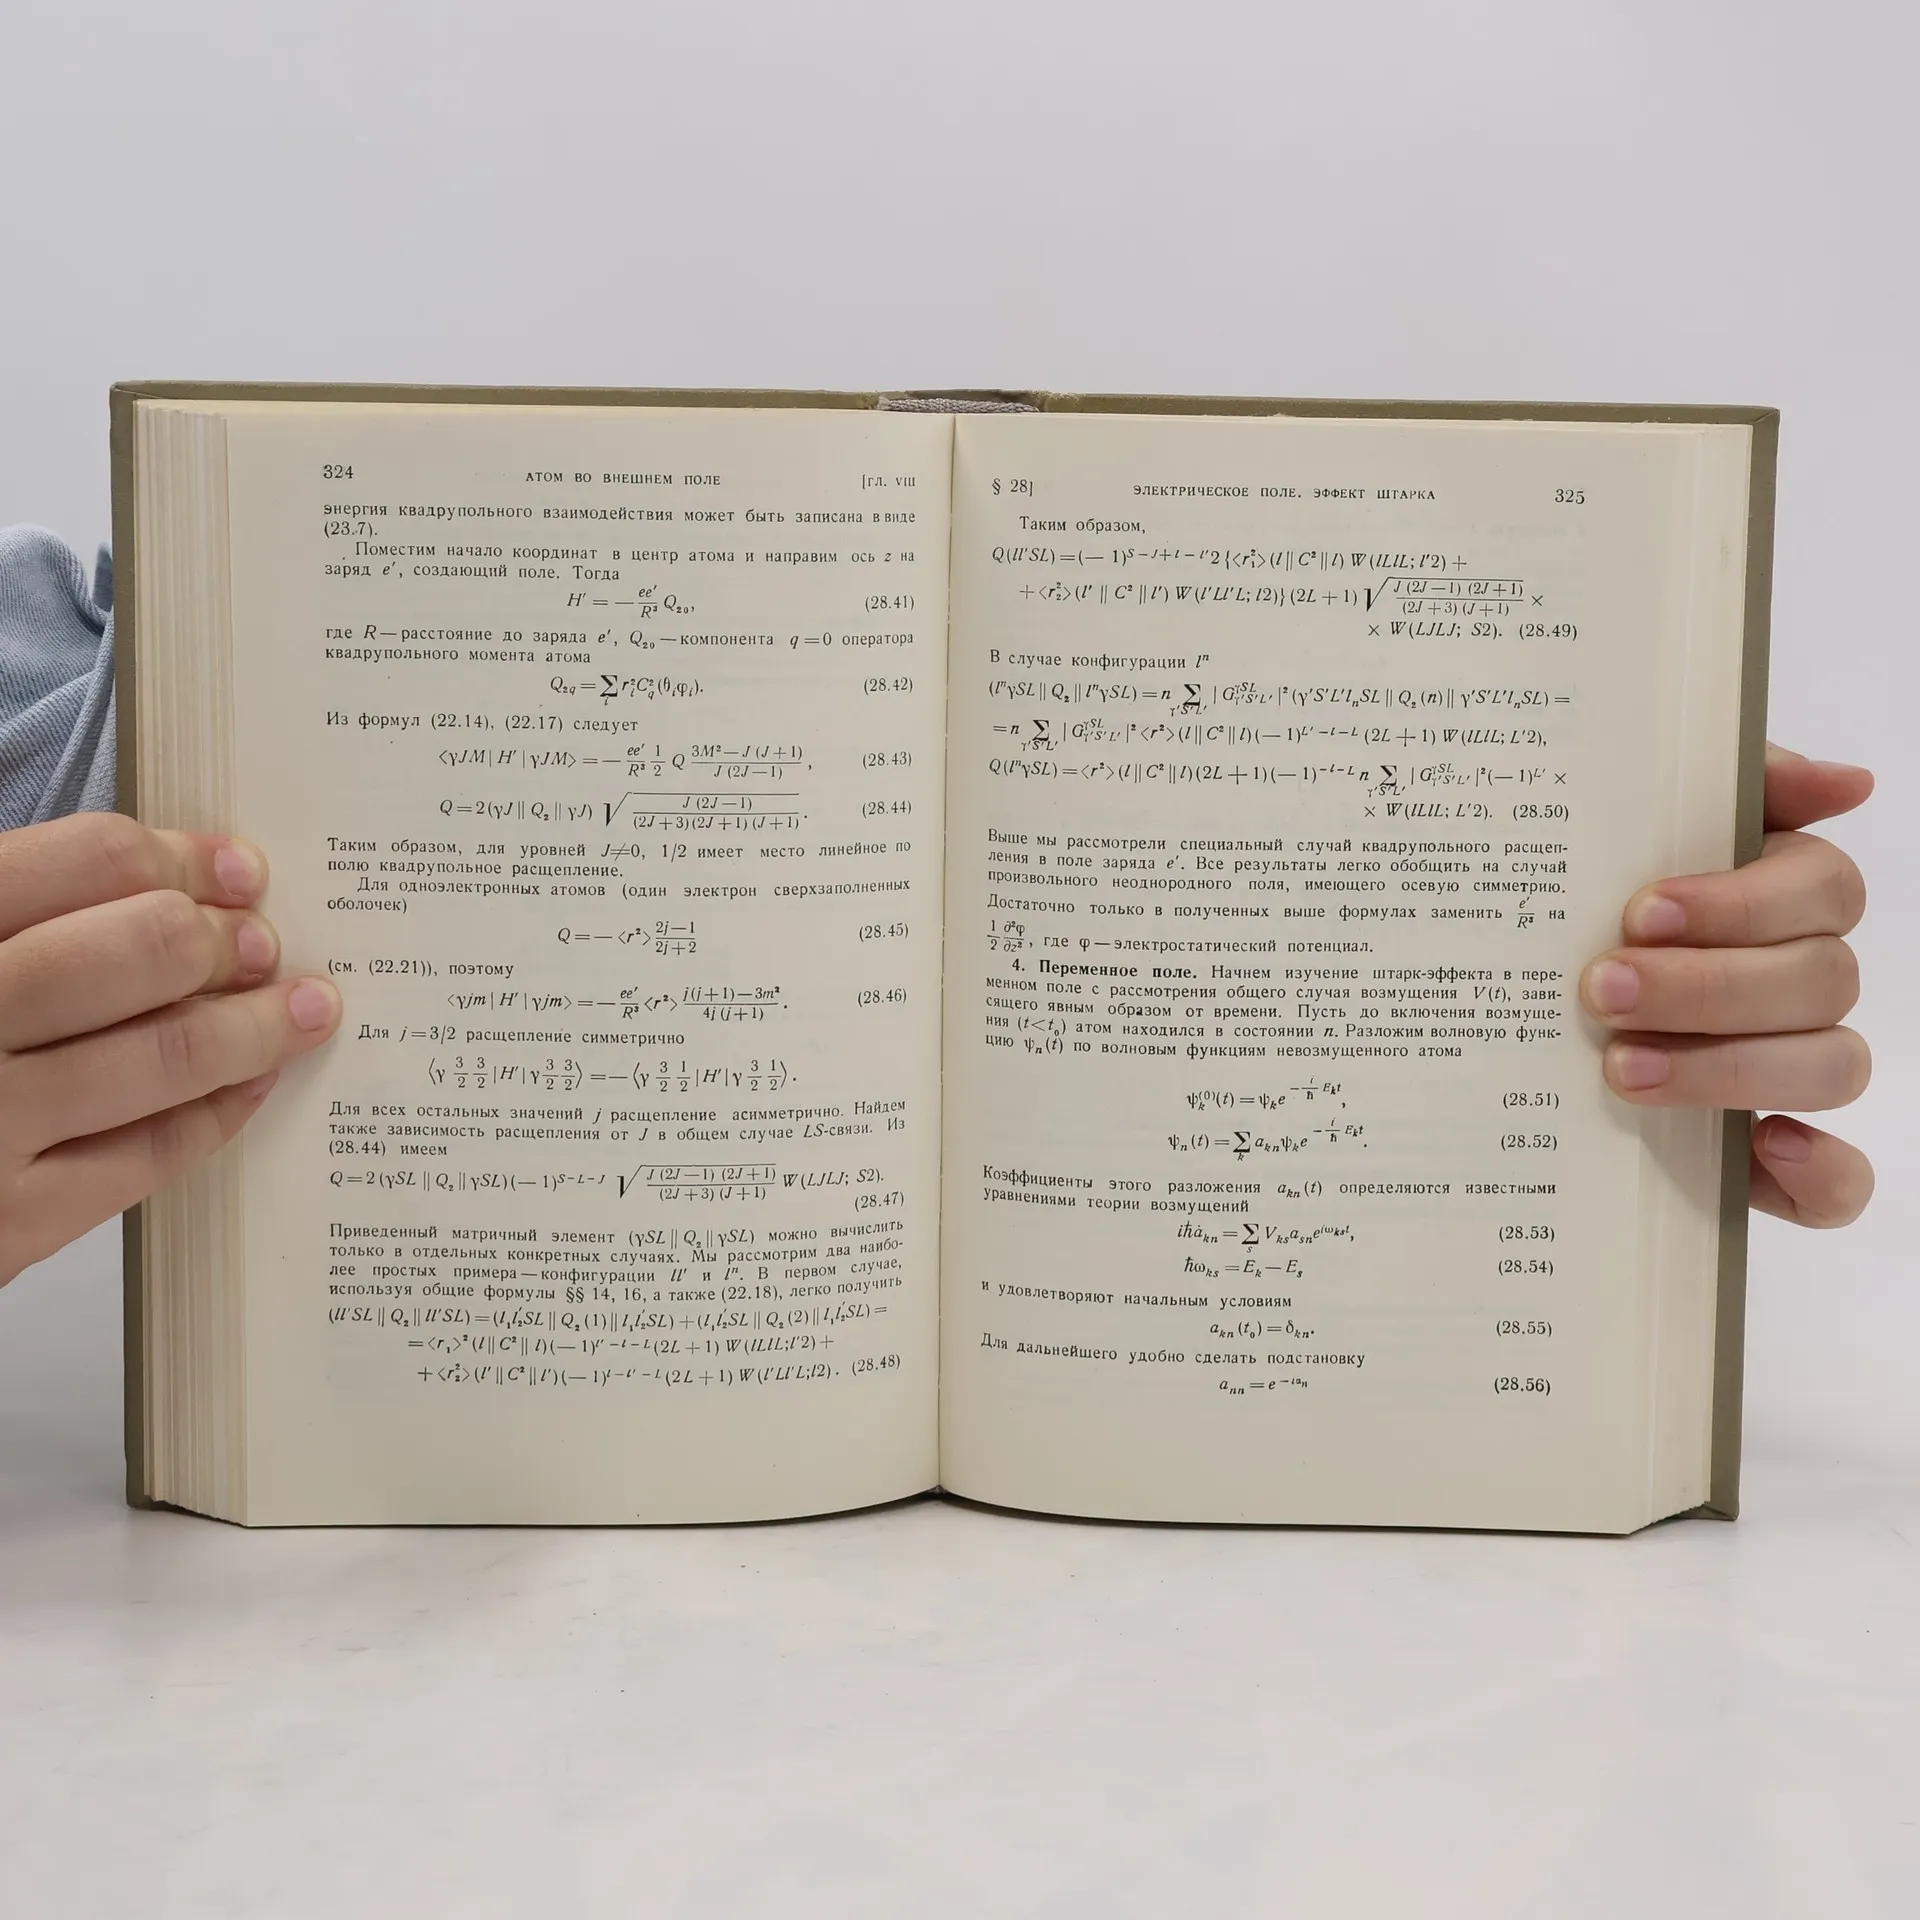 324 АТОМ ВО ВНЕШНЕМ ПОЛЕ [ГЛ. VIII
энергия квадрупольного взаимодействия может быть записана в виде
(23.7).
Поместим начало координат в центр атома и направим ось z на
заряд e′, создающий поле. Тогда
H′ = — ee′/R³ Q₂₀, (28.41)
где R — расстояние до заряда e′, Q₂₀ — компонента q = 0 оператора
квадрупольного момента атома
Q₂q = ∑ᵢ rᵢ²C²q(θᵢφᵢ). (28.42)
Из формул (22.14), (22.17) следует
<γJM| H′ | γJM> = — ee′/R³ 1/2 Q (3M² — J (J + 1))/(J (2J — 1)), (28.43)
Q = 2 (γJ || Q₂ || γJ) √(J (2J — 1)/((2J + 3) (2J + 1) (J + 1))). (28.44)
Таким образом, для уровней J ≠ 0, 1/2 имеет место линейное по
полю квадрупольное расщепление.
Для одноэлектронных атомов (один электрон сверхзаполненных
оболочек)
Q = — <r²> (2j — 1)/(2j + 2) (28.45)
(см. (22.21)), поэтому
<γjm | H′ | γjm> = — ee′/R³ <r²> (j (j + 1) — 3m²)/(4j (j + 1)). (28.46)
Для j = 3/2 расщепление симметрично
⟨γ 3/2 3/2 |H′| γ 3/2 3/2⟩ = — ⟨γ 3/2 1/2 |H′| γ 3/2 1/2⟩.
Для всех остальных значений j расщепление асимметрично. Найдем
также зависимость расщепления от J в общем случае LS-связи. Из
(28.44) имеем
Q = 2 (γSL || Q₂ || γSL) (— 1)^(S – L – J) √(J (2J — 1) (2J + 1)/((2J + 3) (J + 1))) W (LJLJ; S2).
(28.47)
Приведенный матричный элемент (γSL || Q₂ || γSL) можно вычислить
только в отдельных конкретных случаях. Мы рассмотрим два наибо-
лее простых примера — конфигурации ll′ и lⁿ. В первом случае,
используя общие формулы §§ 14, 16, а также (22.18), легко получить
(ll′SL || Q₂ || ll′SL) = (l₁l₂′SL || Q₂ (1) || l₁l₂′SL) + (l₁l₂′SL || Q₂ (2) || l₁l₂′SL) =
= <r₁>² (l || C² || l) (— 1)^(l′ – l – L) (2L + 1) W (lLlL; l′2) +
+ <r₂²> (l′ || C² || l′) (— 1)^(l – l′ – L) (2L + 1) W (l′Ll′L; l2). (28.48)
§ 28] ЭЛЕКТРИЧЕСКОЕ ПОЛЕ. ЭФФЕКТ ШТАРКА 325
Таким образом,
Q (ll′SL) = (— 1)^(S – J + l – l′) 2 {<r₁²> (l || C² || l) W (lLlL; l′2) +
+ <r₂²> (l′ || C² || l′) W (l′Ll′L; l2)} (2L + 1) √(J (2J — 1) (2J + 1)/((2J + 3) (J + 1))) ×
× W (LJLJ; S2). (28.49)
В случае конфигурации lⁿ
(lⁿγSL || Q₂ || lⁿγSL) = n ∑_(γ′S′L′) | G^(γSL)_(γ′S′L′) |² (γ′S′L′lₙSL || Q₂ (n) || γ′S′L′lₙSL) =
= n ∑_(γ′S′L′) | G^(γSL)_(γ′S′L′) |² <r²> (l || C² || l) (— 1)^(L′ – l – L) (2L + 1) W (lLlL; L′2),
Q (lⁿγSL) = <r²> (l || C² || l) (2L + 1) (— 1)^(–l – L) n ∑_(γ′S′L′) | G^(γSL)_(γ′S′L′) |² (— 1)^(L′) ×
× W (lLlL; L′2). (28.50)
Выше мы рассмотрели специальный случай квадрупольного расщеп-
ления в поле заряда e′. Все результаты легко обобщить на случай
произвольного неоднородного поля, имеющего осевую симметрию.
Достаточно только в полученных выше формулах заменить e′/R³ на
1/2 ∂²φ/∂z², где φ — электростатический потенциал.
4. Переменное поле. Начнем изучение штарк-эффекта в пере-
менном поле с рассмотрения общего случая возмущения V (t), зави-
сящего явным образом от времени. Пусть до включения возмуще-
ния (t < t₀) атом находился в состоянии n. Разложим волновую функ-
цию ψₙ (t) по волновым функциям невозмущенного атома
ψₖ⁽⁰⁾ (t) = ψₖe^(– i/ħ Eₖt), (28.51)
ψₙ (t) = ∑ₖ aₖₙψₖe^(– i/ħ Eₖt). (28.52)
Коэффициенты этого разложения aₖₙ (t) определяются известными
уравнениями теории возмущений
iħȧₖₙ = ∑ₛ Vₖₛaₛₙe^(iωₖₛt), (28.53)
ħωₖₛ = Eₖ — Eₛ (28.54)
и удовлетворяют начальным условиям
aₖₙ (t₀) = δₖₙ. (28.55)
Для дальнейшего удобно сделать подстановку
aₙₙ = e^(–iαₙ) (28.56)